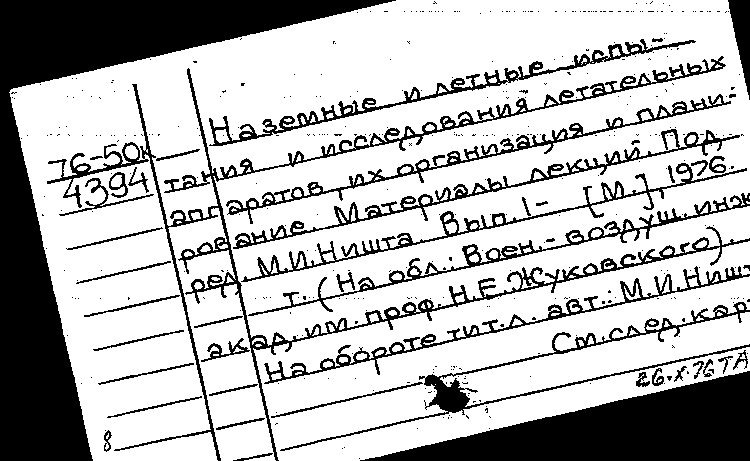 Наземные и летные испы-
76-50к
4394
тания и исследования летательных
аппаратов, их организация и плани-
рование. Материалы лекций. Под
ред. М.И.Ништа. Вып. 1- [М.], 1976.
т. (На обл.: Воен.-воздуш. инж
акад. им. проф. Н.Е.Жуковского).
На обороте тит.л. авт.: М.И.Ништ
См.след.кар
26.X.76 ТА
8